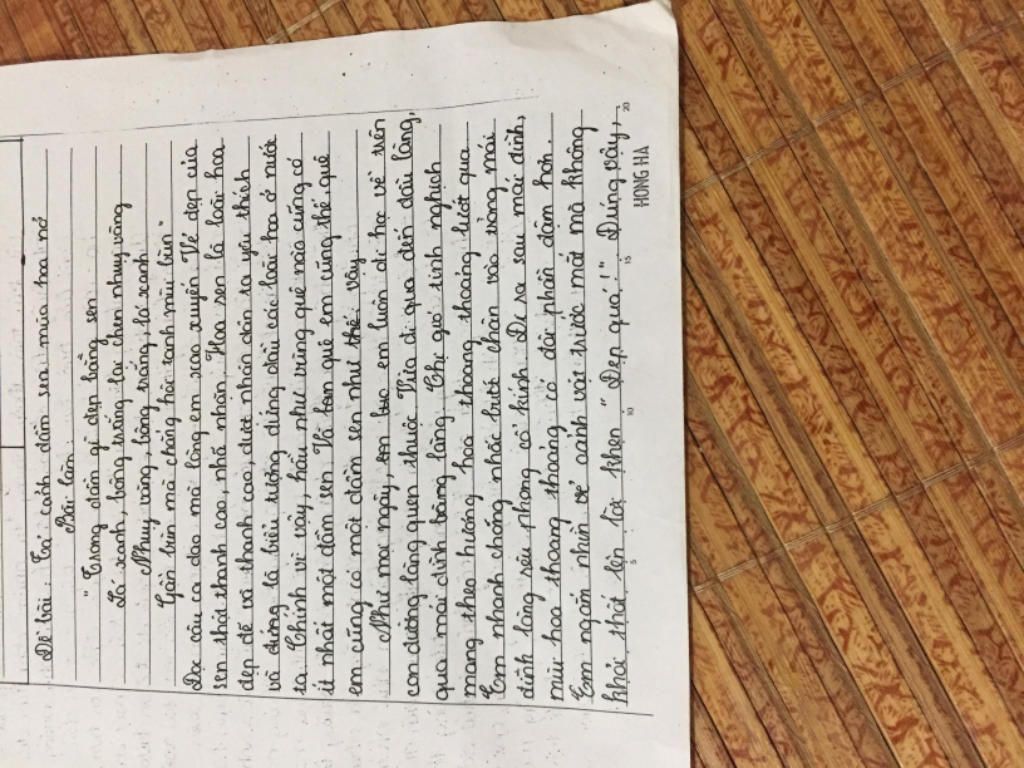 Đề bài: Tả cảnh đầm sen mùa hoa nở
Bài làm:
"Trong đầm gì đẹp bằng sen
Lá xanh, bông trắng lại chen nhuỵ vàng
Nhuỵ vàng, bông trắng, lá xanh
Gần bùn mà chẳng hôi tanh mùi bùn"
Đọc câu ca dao mà lòng em xao xuyến. Vẻ đẹp của
sen thật thanh cao, nhã nhặn. Hoa sen là loài hoa
đẹp đẽ và thanh cao, được nhân dân ta yêu thích
và đứng là biểu tượng đứng đầu các loài hoa ở nước
ta. Chính vì vậy, hầu như vùng quê nào cũng có
ít nhất một đầm sen. Và làng quê em cũng thế, quê
em cũng có một đầm sen như thế vậy.
Như mọi ngày, em luôn đi học về trên
con đường làng quen thuộc. Vừa đi qua đến đầu làng,
qua mái đình bằng lăng. Chị gió tinh nghịch
mang theo hương hoa thoang thoảng lướt qua.
Em nhanh chóng nhấc bước chân vào trong mái
đình làng rêu phong cổ kính. Đi ra sau mái đình,
mùi hoa thoang thoảng có đôi phần đậm hơn.
Em ngắm nhìn vẻ cảnh vật trước mắt mà không
khỏi thốt lên lời khen "Đẹp quá!" Đúng vậy,
5 10 15 20
HONG HA